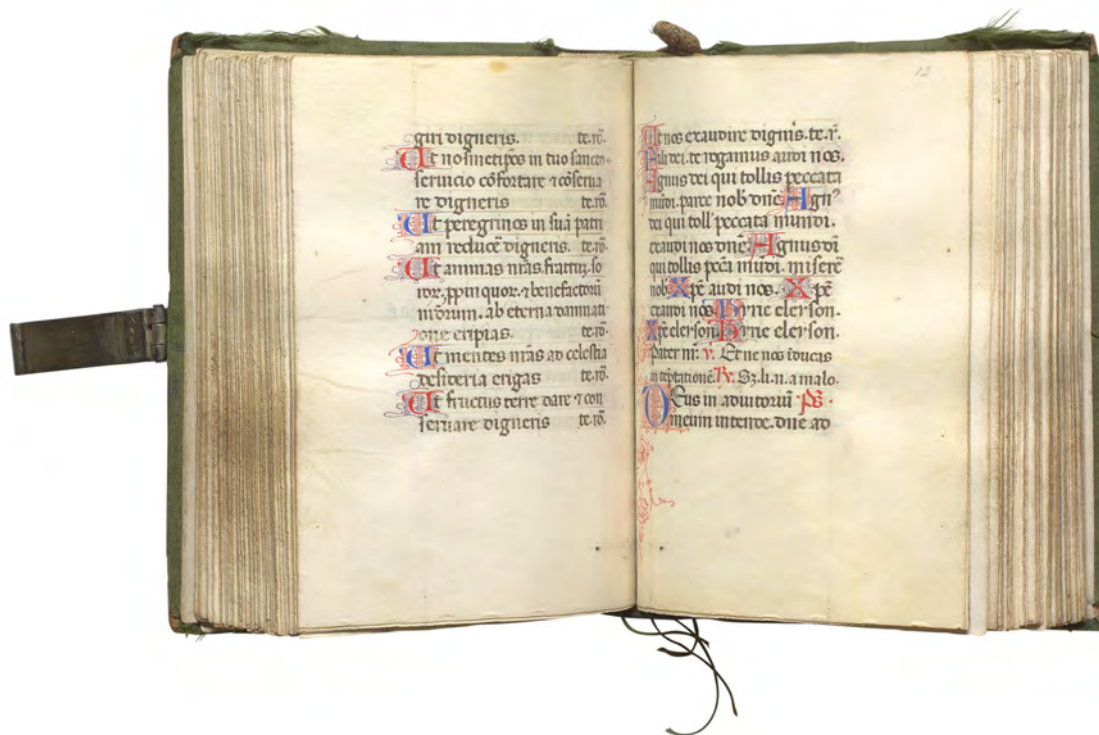 giri digneris. te.rō.
Ut nosmetip̄os in tuo sancto
seruicio cōfortare ⁊ cōserua
re digneris te.rō.
Ut peregrinos in suā patri
am reducē digneris. te.rō.
Ut animas nrās. fratrꝫ. so
ꝓpinquor. ⁊ benefactorū
nrōrum. ab eterna damnati
one eripias. te.rō.
Ut mentes nrās ad celestia
desideria erigas te.rō.
Ut fructus terre dare ⁊ con
seruare digneris te.rō.
12
Ut nos exaudire dignis. te.r̄.
Fili dei. te rogamus audi nos.
Agnus dei qui tollis peccata
mūdi. parce nob̄ dn̄e Agnꝰ
dei qui toll' peccata mundi.
exaudi nos dn̄e Agnus dī
qui tollis pccā mūdi. miserē
nob̄ Xp̄e audi nos. Xp̄e
exaudi nos Kyrie eleyson.
Xp̄e eleyson. Kyrie eleyson.
Pater nr̄. ℣. Et ne nos īducas
in tēptationē. ℟. Sꝫ. li. n. a malo.
Deus in adiutoriū Ps̄.
meum intende. dn̄e ad